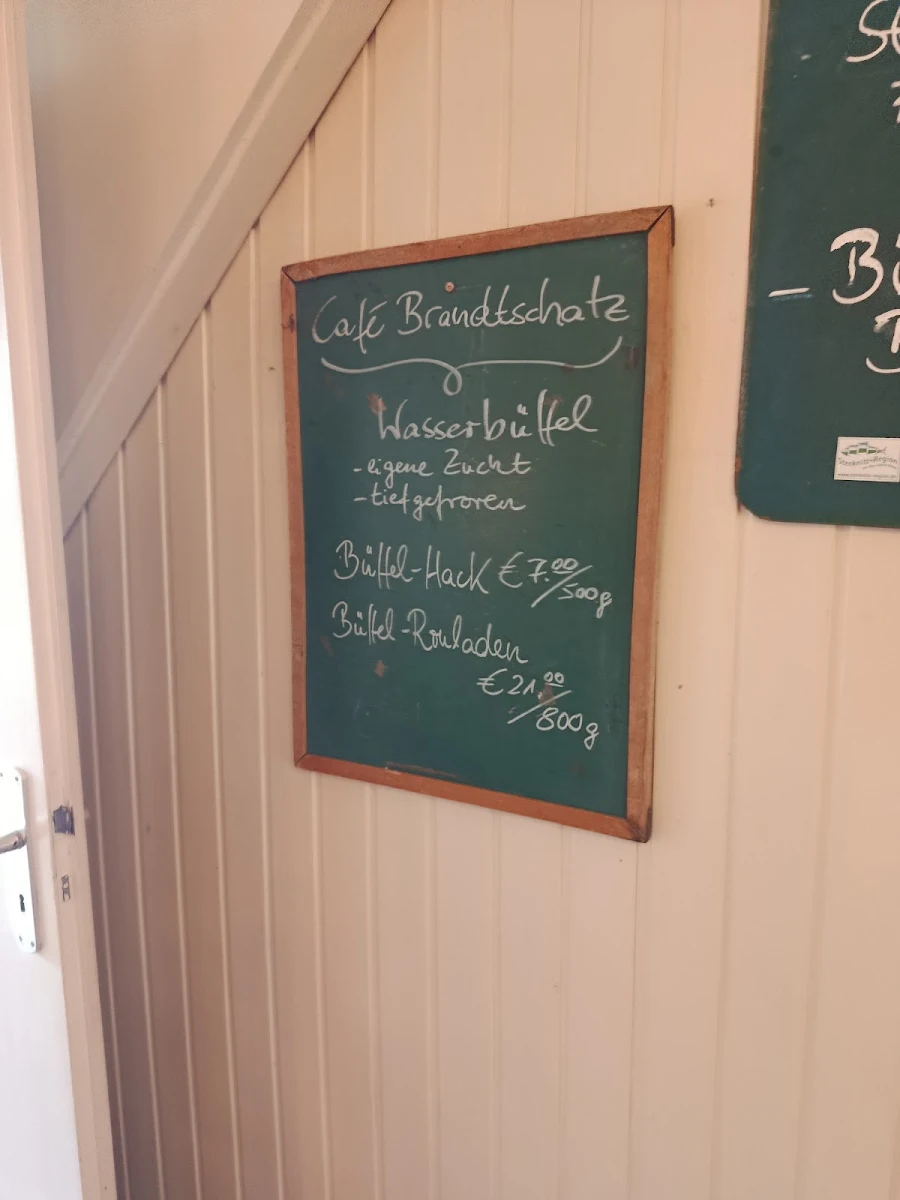 Café Brandtschatz
Wasserbüffel
- eigene Zucht
- tiefgefroren
Büffel-Hack € 7.00/500g
Büffel-Rouladen
€ 21.00
/800g
St
- Bü
Stecknitz-Region